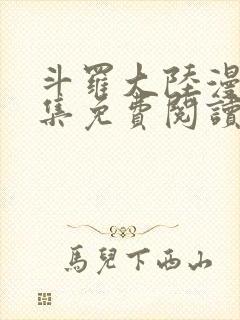 斗羅大陸漫
集免費閱讀
馬兒下西山